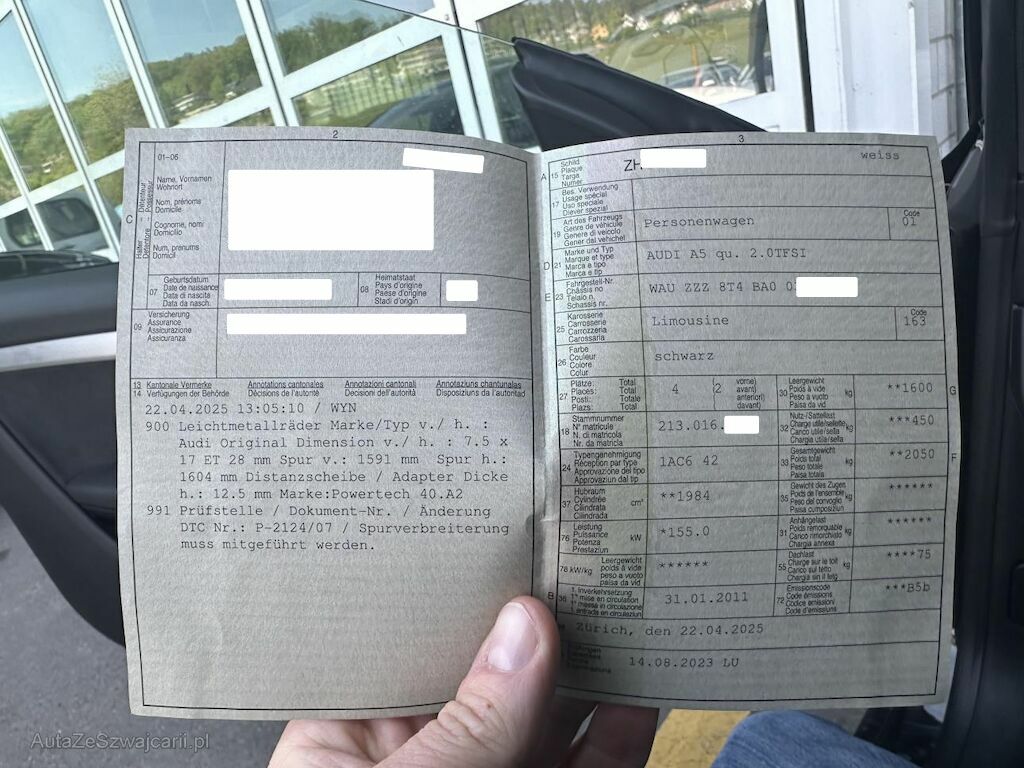 2
01-06
Name, Vornamen
Wohnort
Nom, prénoms
Domicile
Cognome, nomi
Domicilio
Num, prenums
Domicil
C
Halter Détenteur
Detentore Possessur
07
Geburtsdatum
Date de naissance
Data di nascita
Data da nasch.
08
Heimatstaat
Pays d'origine
Paese d'origine
Stadi d'origin
09
Versicherung
Assurance
Assicurazione
Assicuranza
13
14
Kantonale Vermerke
Verfügungen der Behörde
Annotations cantonales
Décisions de l'autorité
Annotazioni cantonali
Decisioni dell'autorità
Annotaziuns chantunalas
Disposiziuns da l'autoritad
22.04.2025 13:05:10 / WYN
900 Leichtmetallräder Marke/Typ v./ h. :
Audi Original Dimension v./ h. : 7.5 x
17 ET 28 mm Spur v.: 1591 mm Spur h.:
1604 mm Distanzscheibe / Adapter Dicke
h.: 12.5 mm Marke:Powertech 40.A2
991 Prüfstelle / Dokument-Nr. / Änderung
DTC Nr.: P-2124/07 / Spurverbreiterung
muss mitgeführt werden.
3
A
15
Schild
Plaque
Targa
Numer
ZH
weiss
17
Bes. Verwendung
Usage spécial
Uso speciale
Diever spezial
19
Art des Fahrzeugs
Genre de véhicule
Genere di veicolo
Gener dal vehichel
Personenwagen
Code
01
D
21
Marke und Typ
Marque et type
Marca e tipo
Marca e tip
AUDI A5 qu. 2.0TFSI
E
23
Fahrgestell-Nr.
Châssis no
Telaio n.
Schassis nr.
WAU ZZZ 8T4 BA0 0
25
Karosserie
Carrosserie
Carrozzeria
Carossaria
Limousine
Code
163
26
Farbe
Couleur
Colore
Colur
schwarz
27
Plätze: Total
Places: Total
Posti: Totale
Plazs: Total
4
(2
vorne)
avant)
anteriori)
davant)
30
Leergewicht
Poids à vide
Peso a vuoto
Paisa da vid
kg
**1600
G
18
Stammnummer
N° matricule
N. di matricola
Nr. da matricla
213.016.
32
Nutz-/Sattellast
Charge utile/sellette
Carico utile/sella
Chargia utila/sella
kg
***450
24
Typengenehmigung
Réception par type
Approvazione del tipo
Approvaziun dal tip
1AC6 42
33
Gesamtgewicht
Poids total
Peso totale
Paisa totala
kg
**2050
F
37
Hubraum
Cylindrée
Cilindrata
Cilindrada
cm³
**1984
35
Gewicht des Zuges
Poids de l'ensemble
Peso del convoglio
Paisa cumposiziun
kg
******
76
Leistung
Puissance
Potenza
Prestaziun
kW
*155.0
31
Anhängelast
Poids remorquable
Carico rimorchiato
Chargia annexa
kg
******
78 kW/kg
Leergewicht
poids à vide
peso a vuoto
paisa da vid
******
55
Dachlast
Charge sur le toit
Carico sul tetto
Chargia sin il tetg
kg
****75
B
36
1. Inverkehrsetzung
1re mise en circulation
1a messa in circolazione
1. entrada en circulaziun
31.01.2011
72
Emissionscode
Code émissions
Codice emissioni
Code d'emissiuns
***B5b
Zürich, den 22.04.2025
14.08.2023 LU
AutaZeSzwajcarii.pl